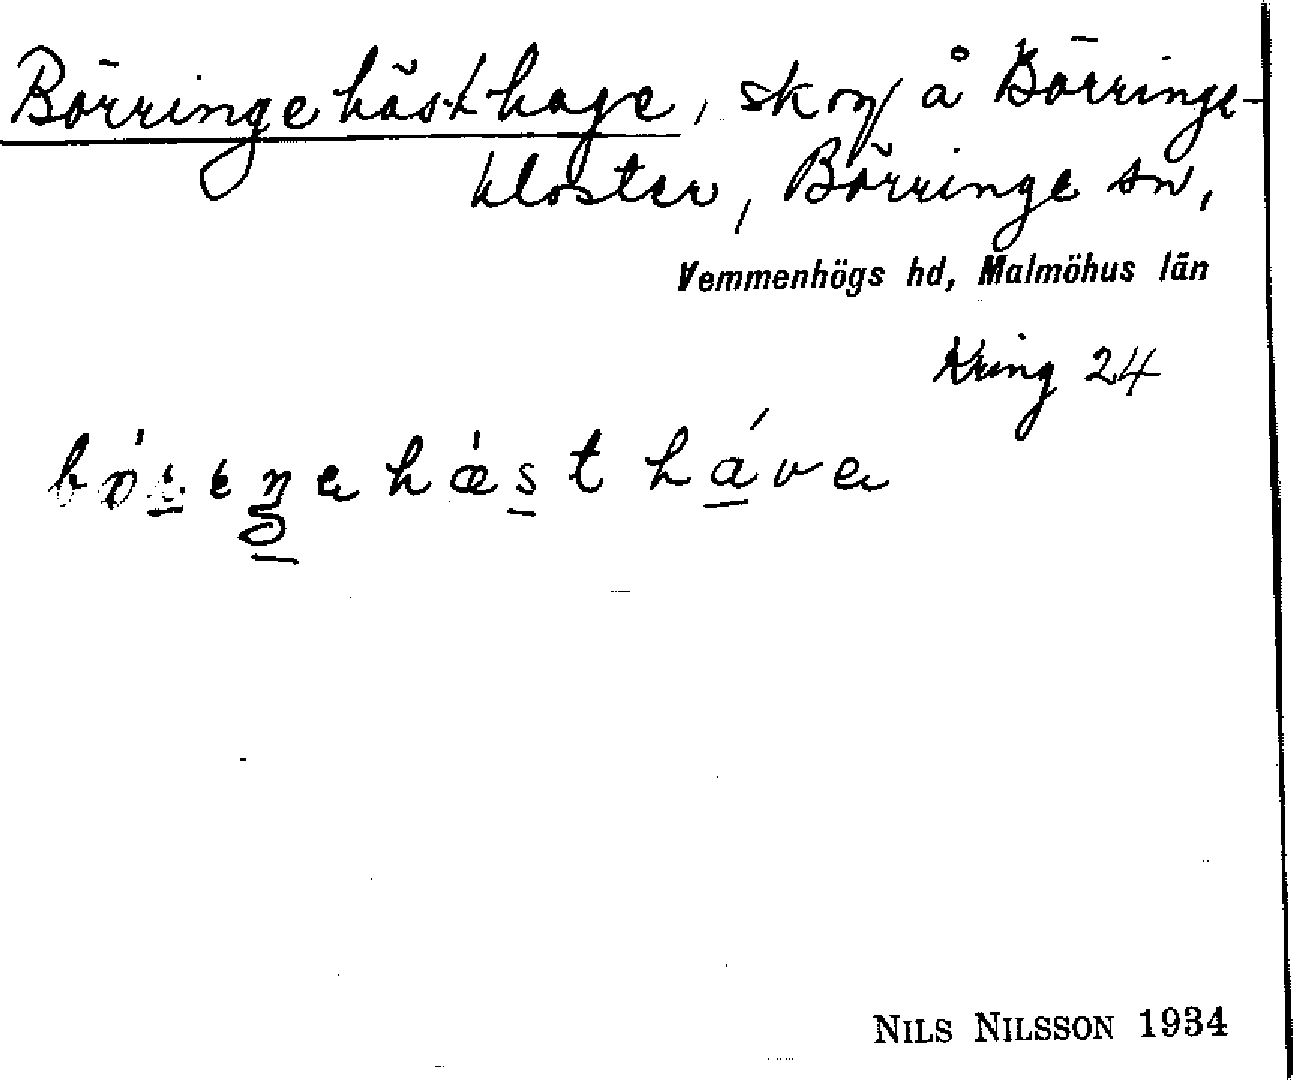 Börringe hästhage, skog å Börringe-
kloster, Börringe sn,
Vemmenhögs hd, Malmöhus län
Kring 24
hæst hava
NILS NILSSON 1934